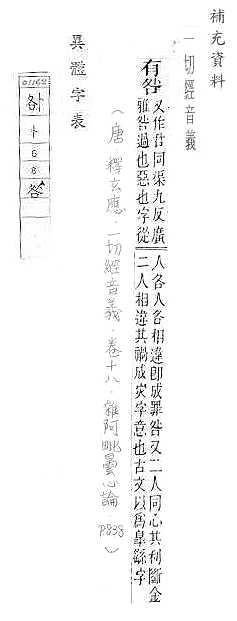 補充資料
一切經音義
有咎 又作𠰔同渠九反廣雅咎過也惡也字從人各人各相違即成罪咎又二人同心其利斷金二人相違其禍成灾字意也古文以爲皋繇字
（唐．釋玄應．一切經音義．卷十八．雜阿毗曇心論．P.838）
異體字表
01162
卜
6
8